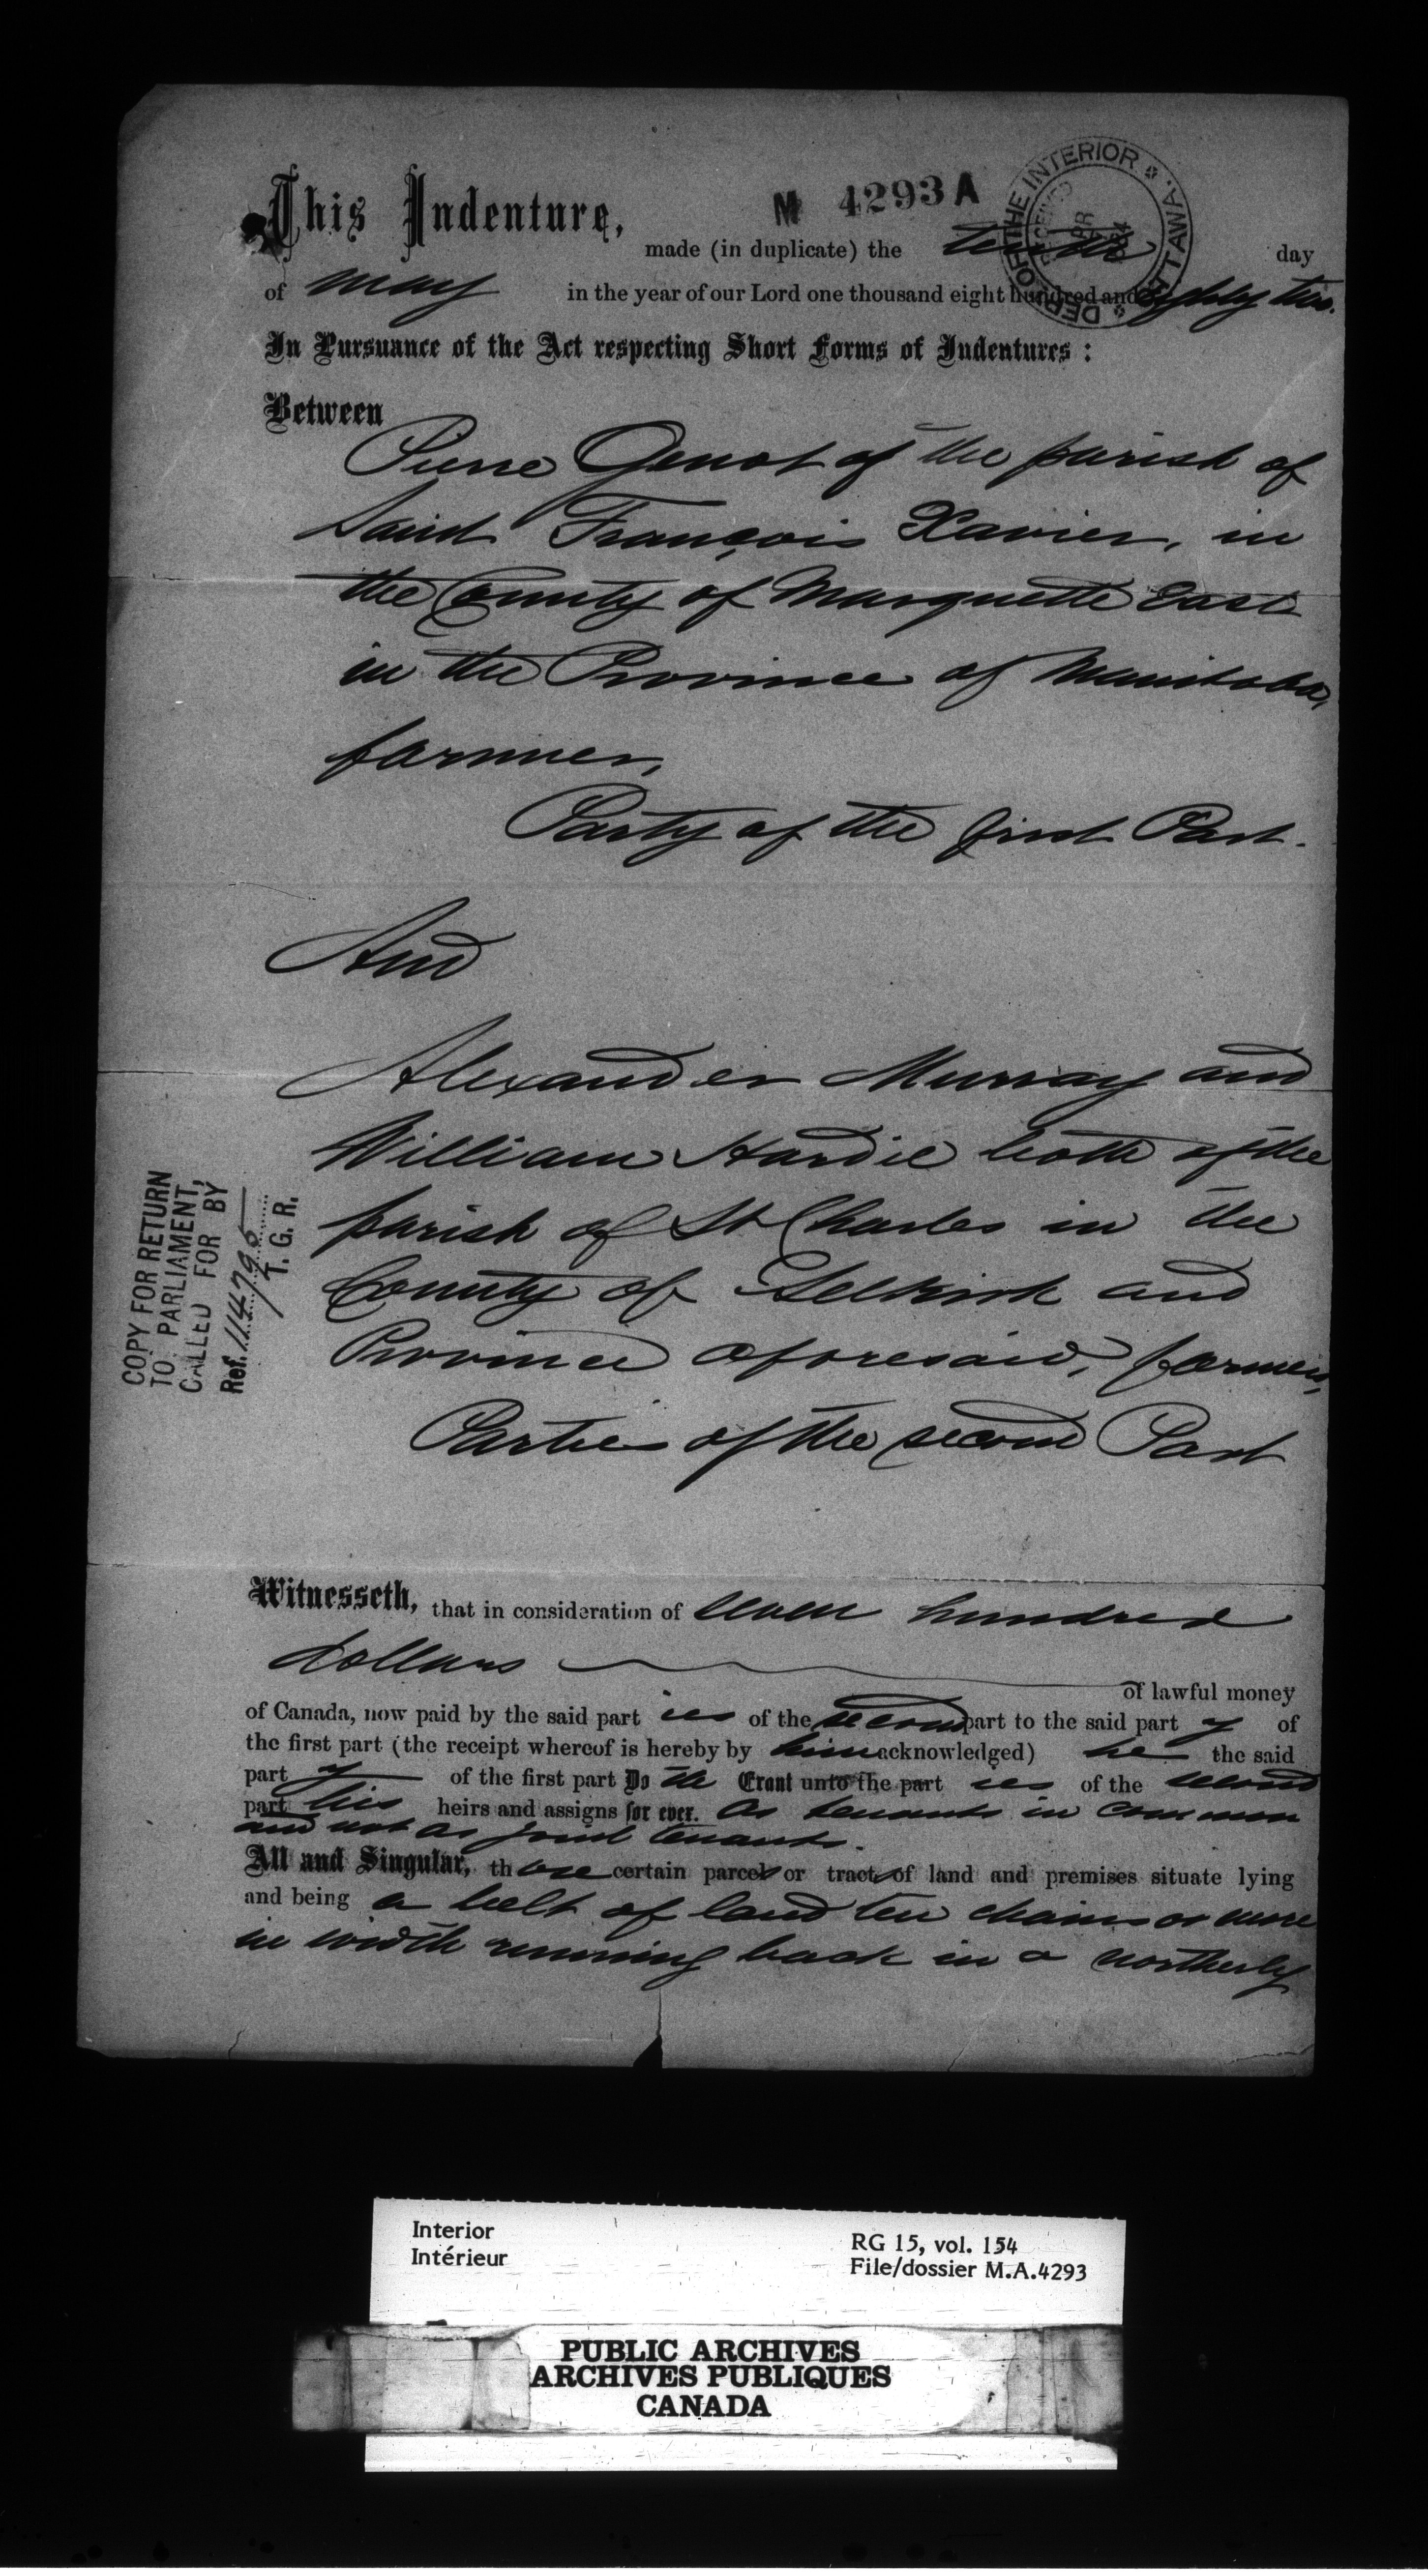 This Indenture,
M 4293 A
DEPT OF THE INTERIOR
OTTAWA.
RECEIVED
made (in duplicate) the tenth day
of May in the year of our Lord one thousand eight hundred and eighty two.
In Pursuance of the Act respecting Short Forms of Indentures :
Between
Pierre Genot of the parish of
Saint François Xavier, in
the County of Marquette East
in the Province of Manitoba,
farmer,
Party of the first Part.
And
Alexander Murray and
William Hardie both of the
parish of St Charles in the
County of Selkirk and
Province aforesaid, farmers,
Parties of the second Part
COPY FOR RETURN
TO PARLIAMENT,
CALLED FOR BY
Ref. 114795
T. G. R.
Witnesseth, that in consideration of seven hundred
dollars
of lawful money
of Canada, now paid by the said part ies of the second part to the said part y of
the first part (the receipt whereof is hereby by him acknowledged) he the said
part y of the first part Do th Grant unto the part ies of the second
part his heirs and assigns for ever. as tenants in common
and not as joint tenants.
All and Singular, th ose certain parcels or tracts of land and premises situate lying
and being a belt of land ten chains or more
in width running back in a northerly
Interior
Intérieur
RG 15, vol. 154
File/dossier M.A.4293
PUBLIC ARCHIVES
ARCHIVES PUBLIQUES
CANADA